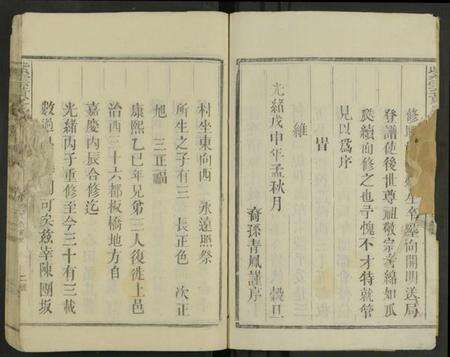 修 生名 向開明送局
登譜使後世尊祖敬宗 綿如瓜
瓞續而修之也予愧不才特就管
見以爲序
旹
維
光緒戊申年孟秋月 穀旦
裔孫青鳳謹序
村坐東向西 永遠照祭
所生之子有三 長正色 次正
旭 三正福
康熙乙巳年兄弟三人復徙上邑
治西三十六都板橋地方自
嘉慶丙辰合修迄
光緒丙子重修至今三十有三載
數過 可矣茲幸陳團坂